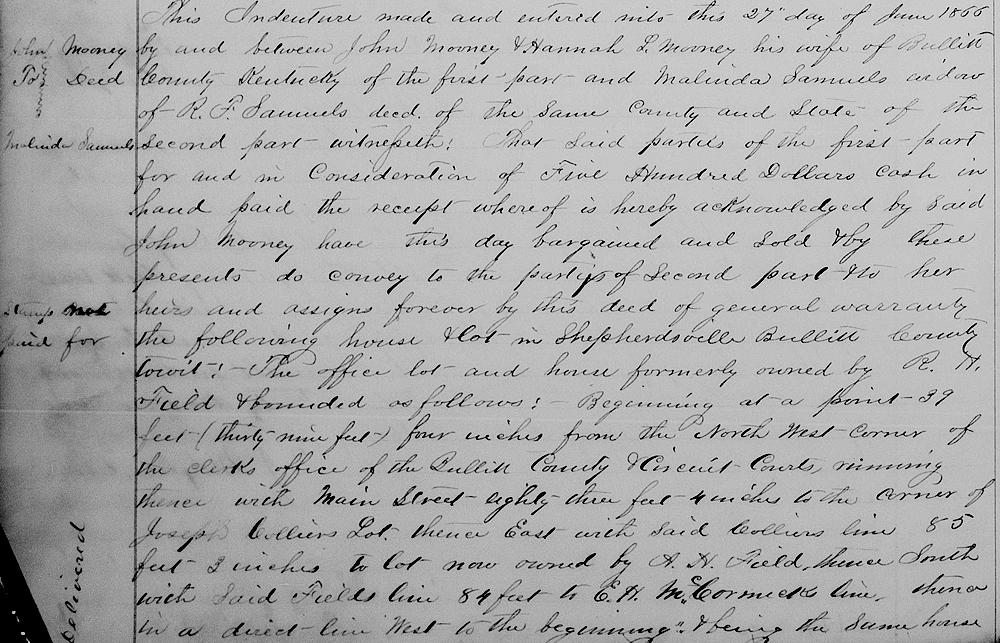 This Indenture made and entered into this 27" day of June 1866
John Mooney
To Deed
Malinda Samuels
by and between John Mooney & Hannah L. Mooney his wife of Bullitt
County Kentucky of the first part and Malinda Samuels widow
of R. F. Samuels decd. of the Same County and State of the
Second part witnesseth: That Said parties of the first part
for and in Consideration of Five Hundred Dollars Cash in
hand paid the receipt whereof is hereby acknowledged by Said
John Mooney have this day bargained and Sold & by these
presents do convey to the party of Second part & to her
Stamps not
paid for
heirs and assigns forever by this deed of general warranty
the following house & lot in Shepherdsville Bullitt County
towit: - The office lot and house formerly owned by R. H.
Field & bounded as follows: - Beginning at a point 39
feet (thirty nine feet) four inches from the North West corner of
the clerks office of the Bullitt County & Circuit Courts, running
thence with Main Street eighty three feet 4 inches to the corner of
Joseph Colliers Lot, thence East with Said Colliers line 85
feet 3 inches to lot now owned by A. H. Field, thence South
with Said Fields line 84 feet to E. H. McCormicks line, thence
in a direct line West to the beginning". & being the Same house
Delivered